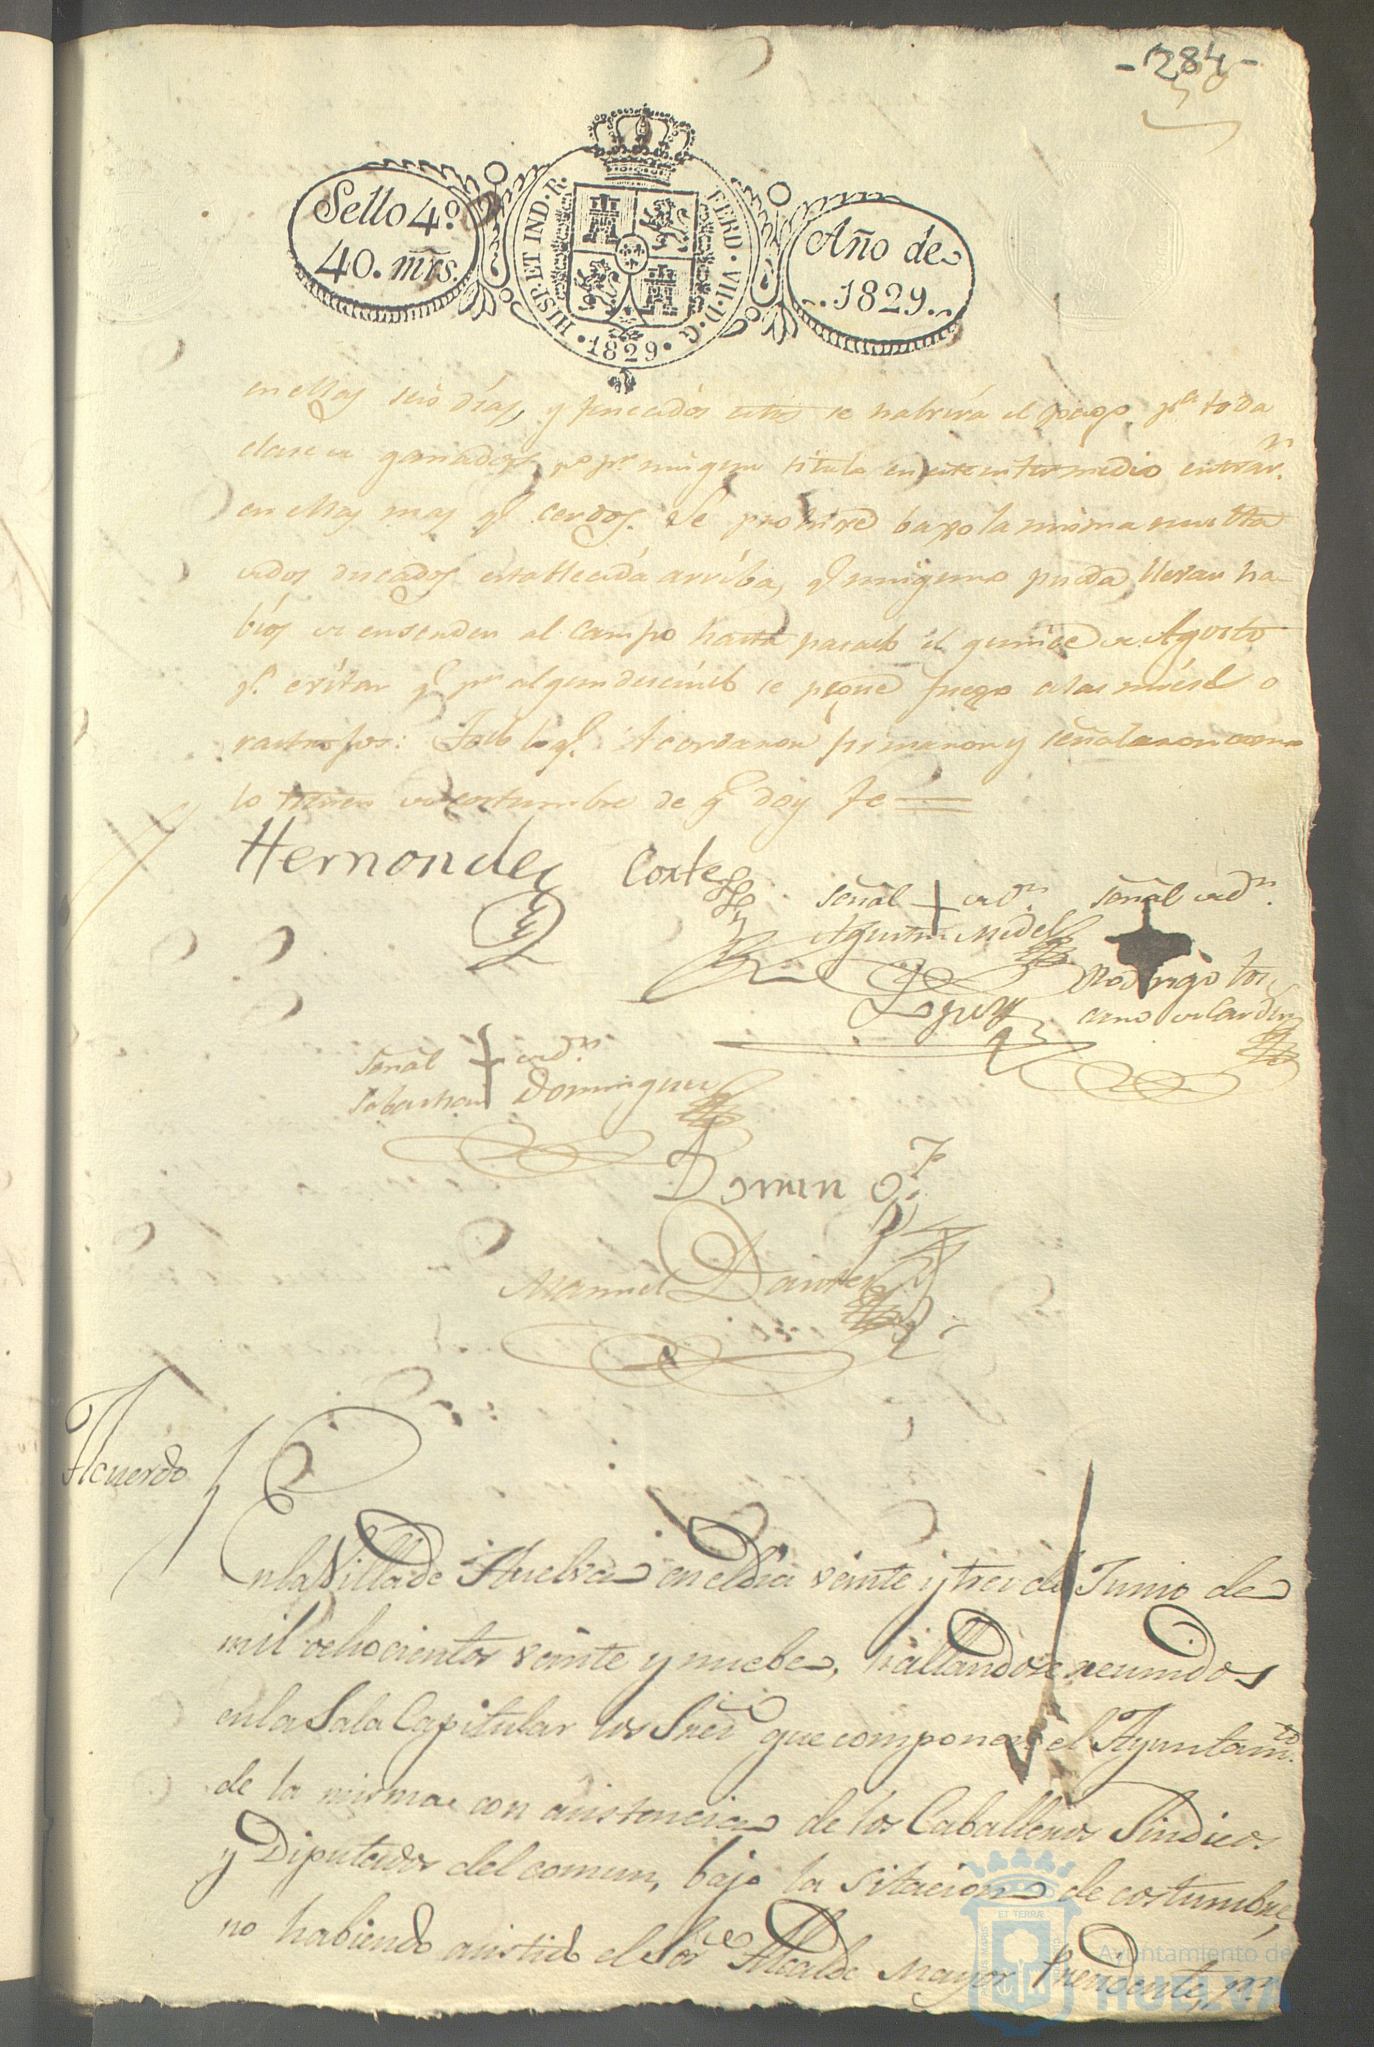 -284-
Sello 4º
40. mrs.
HISP. ET IND. R. FERD. VII. D. G.
·1829·
Año de
1829.
en ellas seis dias, y fenecidos estos se habrirá el pago pª toda
clase de ganados, pº pr ningun titulo en este intermedio entrarn
en ellas mas qe cerdos. Se prohive baxo la misma multa
de dos ducados establecida arriba, qe ninguno pueda llevar ha-
bios de ensender al campo hasta pasado el quince de Agosto
pª evitar qe pr algun descuido se pegue fuego a las mieses o
rastrojos: Todo lo qe Acordaron firmaron y señalaron como
lo tienen de costumbre de qe doy fe
Hernandez Cortes
Señal + de Dn
Agustin Medel
Señal de Dn
Rodrigo Tos-
cano de
Lopez
Señal + de Dn
Sebastian Dominguez
Manuel
Acuerdo
En la Villa de Huelva en el dia veinte y tres de Junio de
mil ochocientos veinte y nuebe, hallandose reunidos
en la Sala Capitular los Sres que componen el Ayuntamto
de la misma con asistencia de los Caballeros Sindicos
y Diputados del comun, bajo la sitacion de costumbre,
no habiendo asistido el Sor Alcalde Mayor Presidente, pr
Ayuntamiento de
HUELVA